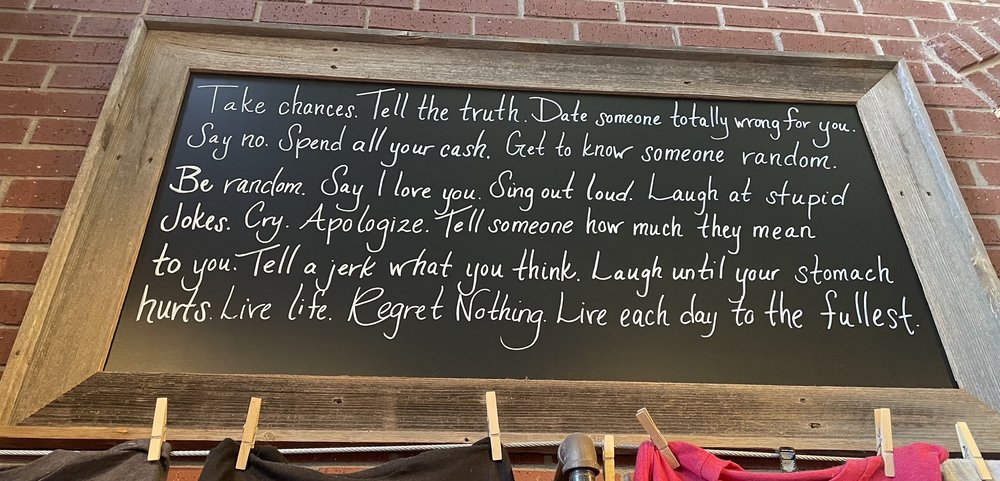 Take chances. Tell the truth. Date someone totally wrong for you.
Say no. Spend all your cash. Get to know someone random.
Be random. Say I love you. Sing out loud. Laugh at stupid
Jokes. Cry. Apologize. Tell someone how much they mean
to you. Tell a jerk what you think. Laugh until your stomach
hurts. Live life. Regret Nothing. Live each day to the fullest.